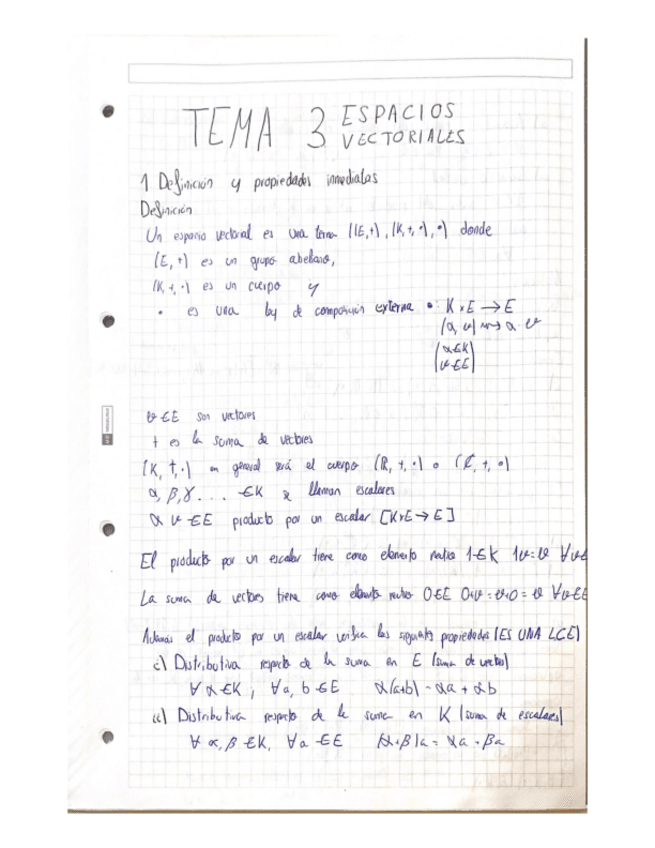 TEMA 3 ESPACIOS
VECTORIALES
1 Definición y propiedades inmediatas
Definición
Un espacio vectorial es una terna ((E,+), (K,+,·),·) donde
(E,+) es un grupo abeliano,
(K,+,·) es un cuerpo y
· es una ley de composición externa ·: K×E → E
(α,v) ⇝ α·v
(α∈K)
(v∈E)
v∈E son vectores
+ es la suma de vectores
(K,+,·) en general será el cuerpo (R,+,·) o (C,+,·)
α,β,γ.... ∈K se llaman escalares
α v ∈E producto por un escalar [K×E→E]
El producto por un escalar tiene como elemento neutro 1∈K 1v=v ∀v∈E
La suma de vectores tiene como elemento neutro 0∈E 0+v=v+0=v ∀v∈E
Además el producto por un escalar verifica las siguientes propiedades (ES UNA LCE)
i) Distributiva respecto de la suma en E (suma de vectores)
∀α∈K, ∀a,b∈E α(a+b)=αa+αb
ii) Distributiva respecto de la suma en K (suma de escalares)
∀α,β∈K, ∀a∈E (α+β)a=αa+βa